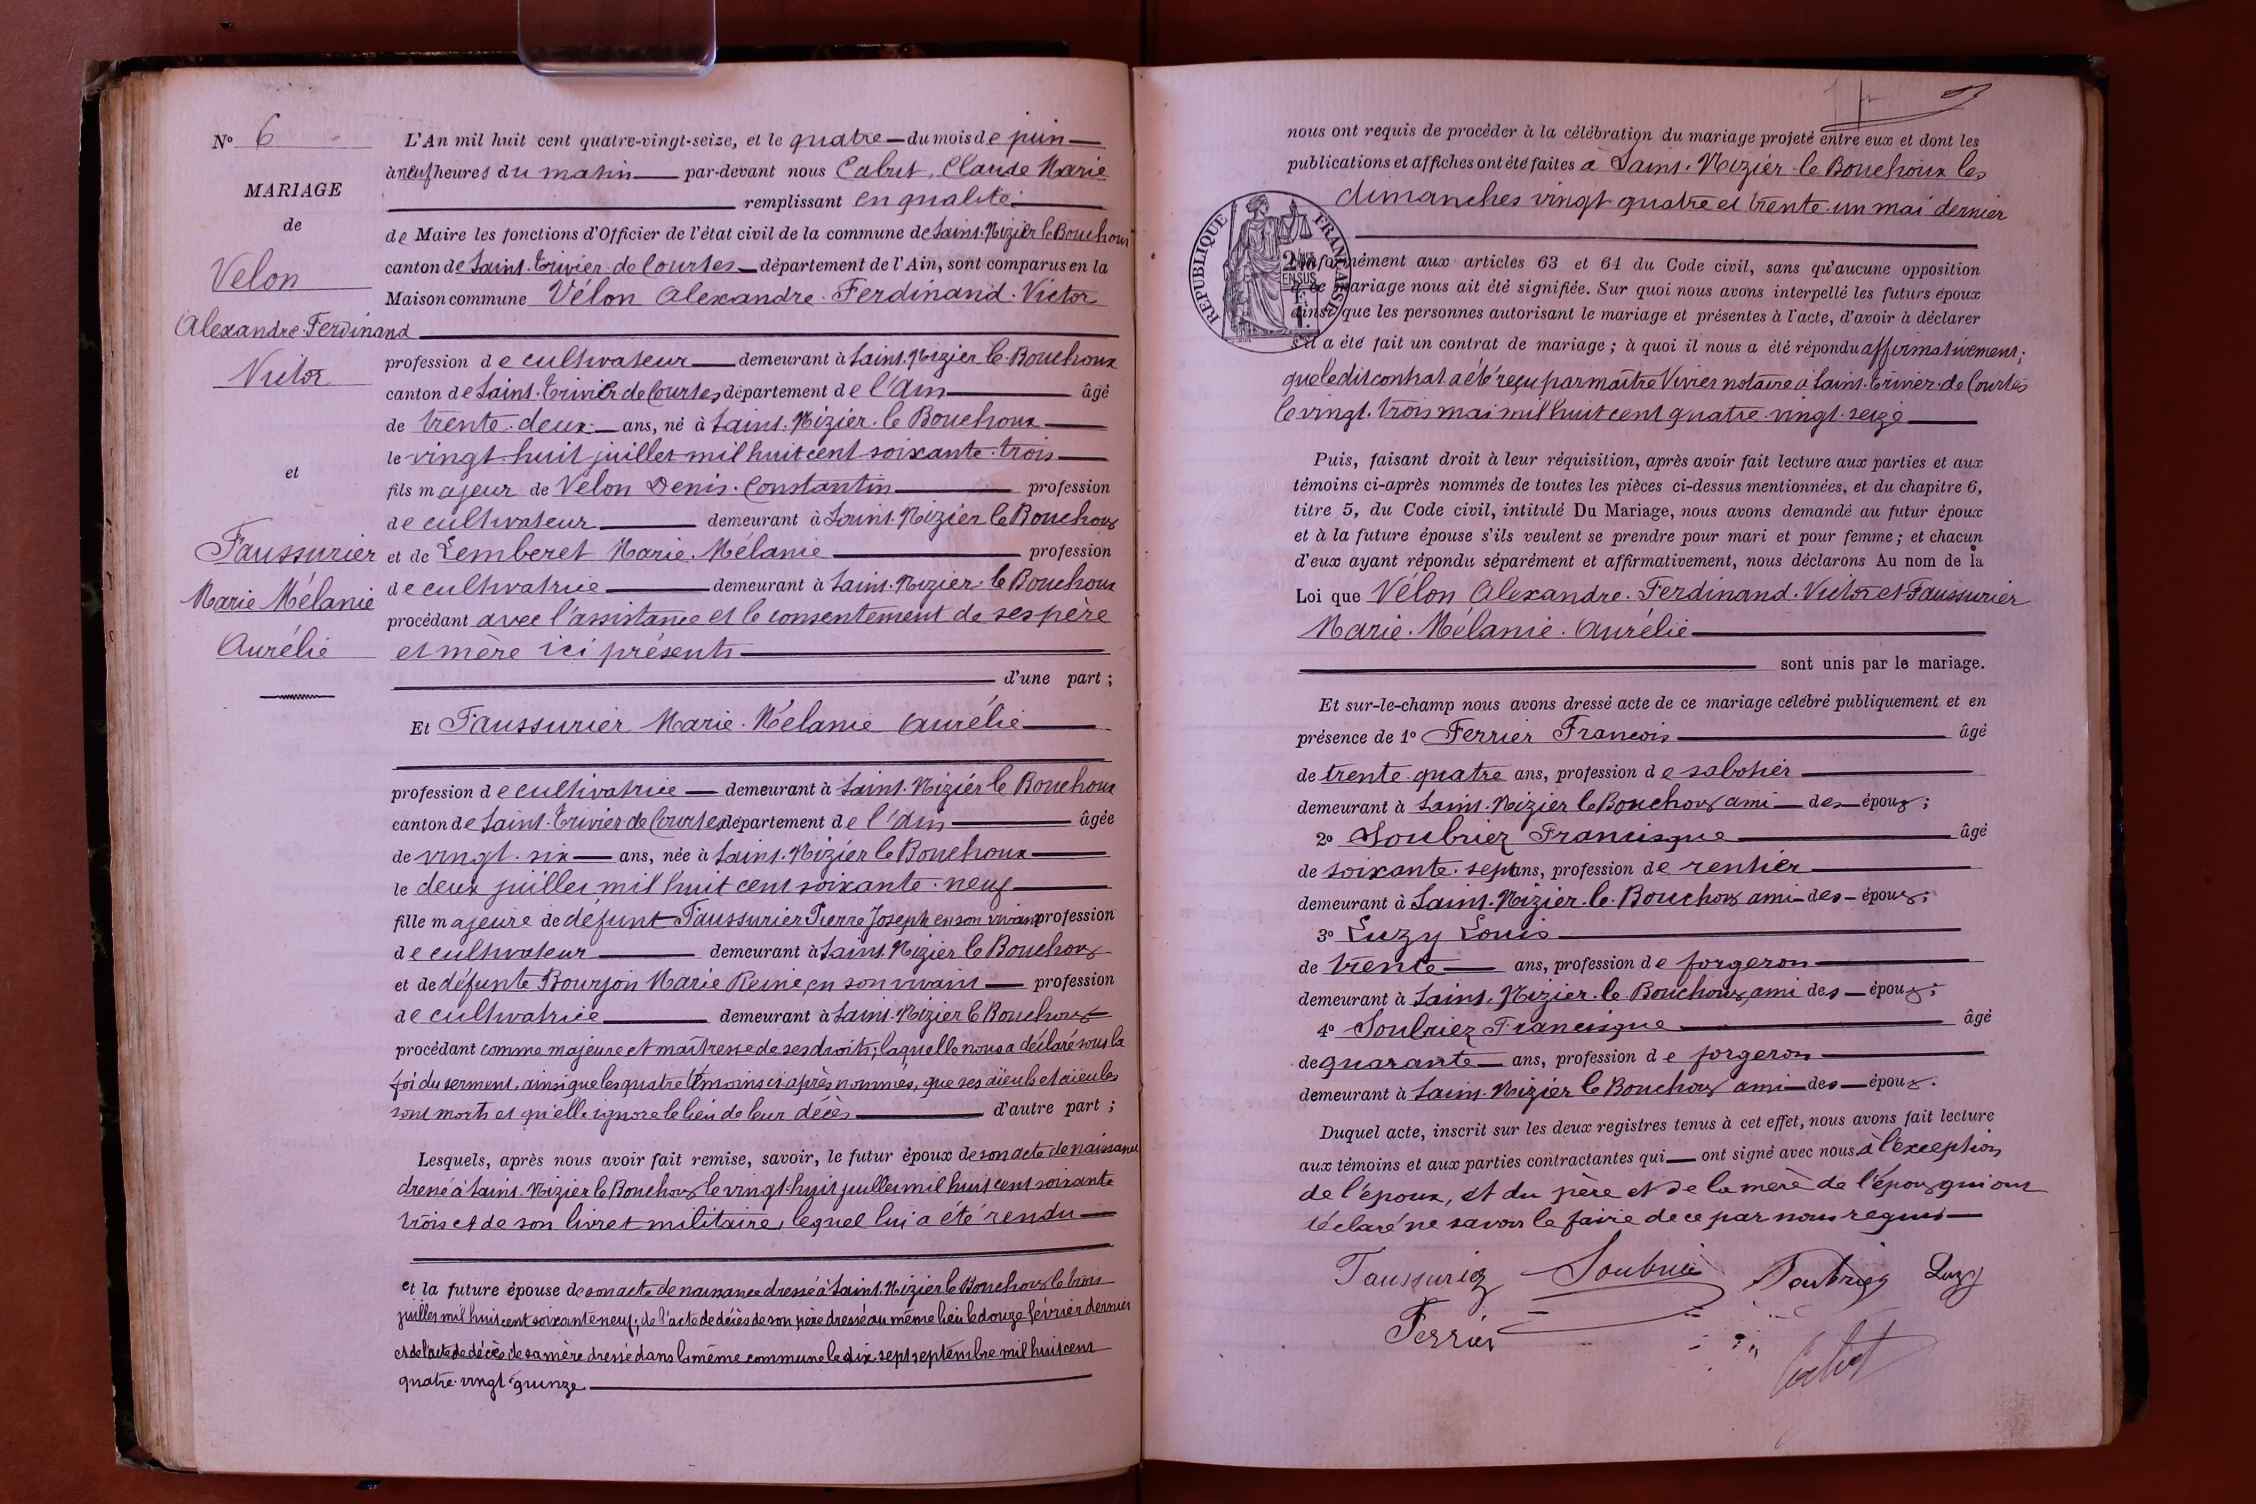 N° 6
MARIAGE
de
Velon
Alexandre Ferdinand
Victor
et
Faussurier
Marie Mélanie
Aurélie
L'An mil huit cent quatre-vingt-seize, et le quatre du mois de juin
à neuf heures du matin par-devant nous Cabut, Claude Marie
remplissant en qualité
de Maire les fonctions d'Officier de l'état civil de la commune de Saint-Nizier le Bouchoux
canton de Saint-Trivier-de-Courtes département de l'Ain, sont comparus en la
Maison commune Vélon Alexandre-Ferdinand-Victor
profession de cultivateur demeurant à Saint-Nizier le Bouchoux
canton de Saint-Trivier de Courtes département de l'Ain âgé
de trente-deux ans, né à Saint-Nizier-le Bouchoux
le vingt-huit juillet mil huit cent soixante-trois
fils majeur de Velon Denis-Constantin profession
de cultivateur demeurant à Saint-Nizier le Bouchoux
et de Lemberet Marie Mélanie profession
de cultivatrice demeurant à Saint-Nizier-le Bouchoux
procédant avec l'assistance et le consentement de ses père
et mère ici présents
d'une part ;
Et Faussurier Marie-Mélanie Aurélie
profession de cultivatrice demeurant à Saint-Nizier le Bouchoux
canton de Saint-Trivier de Courtes département de l'Ain âgée
de vingt-six ans, née à Saint-Nizier le Bouchoux
le deux juillet mil huit cent soixante-neuf
fille majeure de défunt Faussurier Pierre Joseph en son vivant profession
de cultivateur demeurant à Saint-Nizier le Bouchoux
et de défunte Bourjon Marie Reine, en son vivant profession
de cultivatrice demeurant à Saint-Nizier le Bouchoux
procédant comme majeure et maîtresse de ses droits; laquelle nous a déclaré sous la
foi du serment, ainsi que les quatre témoins ci-après nommés, que ses aïeuls et aïeules
sont morts et qu'elle ignore le lieu de leur décès d'autre part ;
Lesquels, après nous avoir fait remise, savoir, le futur époux de son acte de naissance
dressé à Saint-Nizier le Bouchoux le vingt-huit juillet mil huit cent soixante
trois et de son livret militaire, lequel lui a été rendu
et la future épouse de son acte de naissance dressé à Saint-Nizier le Bouchoux le trois
juillet mil huit cent soixante neuf; de l'acte de décès de son père dressé au même lieu le douze février dernier
et de l'acte de décès de sa mère dressé dans la même commune le dix-sept septembre mil huit cent
quatre-vingt-quinze
nous ont requis de procéder à la célébration du mariage projeté entre eux et dont les
publications et affiches ont été faites à Saint-Nizier-le Bouchoux les
dimanches vingt quatre et trente-un mai dernier
RÉPUBLIQUE FRANÇAISE
conformément aux articles 63 et 64 du Code civil, sans qu'aucune opposition
à ce mariage nous ait été signifiée. Sur quoi nous avons interpellé les futurs époux
ainsi que les personnes autorisant le mariage et présentes à l'acte, d'avoir à déclarer
s'il a été fait un contrat de mariage ; à quoi il nous a été répondu affirmativement;
que le dit contrat a été reçu par maître Vivier notaire à Saint-Trivier-de Courtes
le vingt-trois mai mil huit cent quatre-vingt-seize
Puis, faisant droit à leur réquisition, après avoir fait lecture aux parties et aux
témoins ci-après nommés de toutes les pièces ci-dessus mentionnées, et du chapitre 6,
titre 5, du Code civil, intitulé Du Mariage, nous avons demandé au futur époux
et à la future épouse s'ils veulent se prendre pour mari et pour femme ; et chacun
d'eux ayant répondu séparément et affirmativement, nous déclarons Au nom de la
Loi que Vélon Alexandre-Ferdinand-Victor et Faussurier
Marie-Mélanie-Aurélie
sont unis par le mariage.
Et sur-le-champ nous avons dressé acte de ce mariage célébré publiquement et en
présence de 1° Ferrier François âgé
de trente-quatre ans, profession de sabotier
demeurant à Saint-Nizier le Bouchoux ami des époux ;
2° Soubriez Francisque âgé
de soixante-sept ans, profession de rentier
demeurant à Saint-Nizier-le-Bouchoux ami des époux ;
3° Luzy Louis
de trente ans, profession de forgeron
demeurant à Saint-Nizier-le Bouchoux ami des époux ;
4° Soubriez Francisque âgé
de quarante ans, profession de forgeron
demeurant à Saint-Nizier le Bouchoux ami des époux.
Duquel acte, inscrit sur les deux registres tenus à cet effet, nous avons fait lecture
aux témoins et aux parties contractantes qui ont signé avec nous à l'exception
de l'époux, et du père et de la mère de l'époux qui ont
déclaré ne savoir le faire de ce par nous requis
Faussuriez Soubriez Soubriez Luzy
Ferrier
Cabut